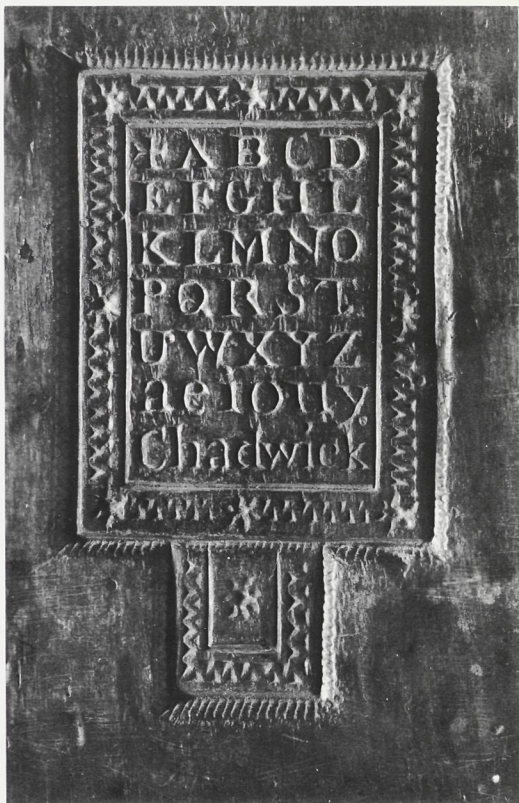 +ABCD
EFGHIL
KLMNO
PQRST
UWXYZ
aeiouy
Chadwick